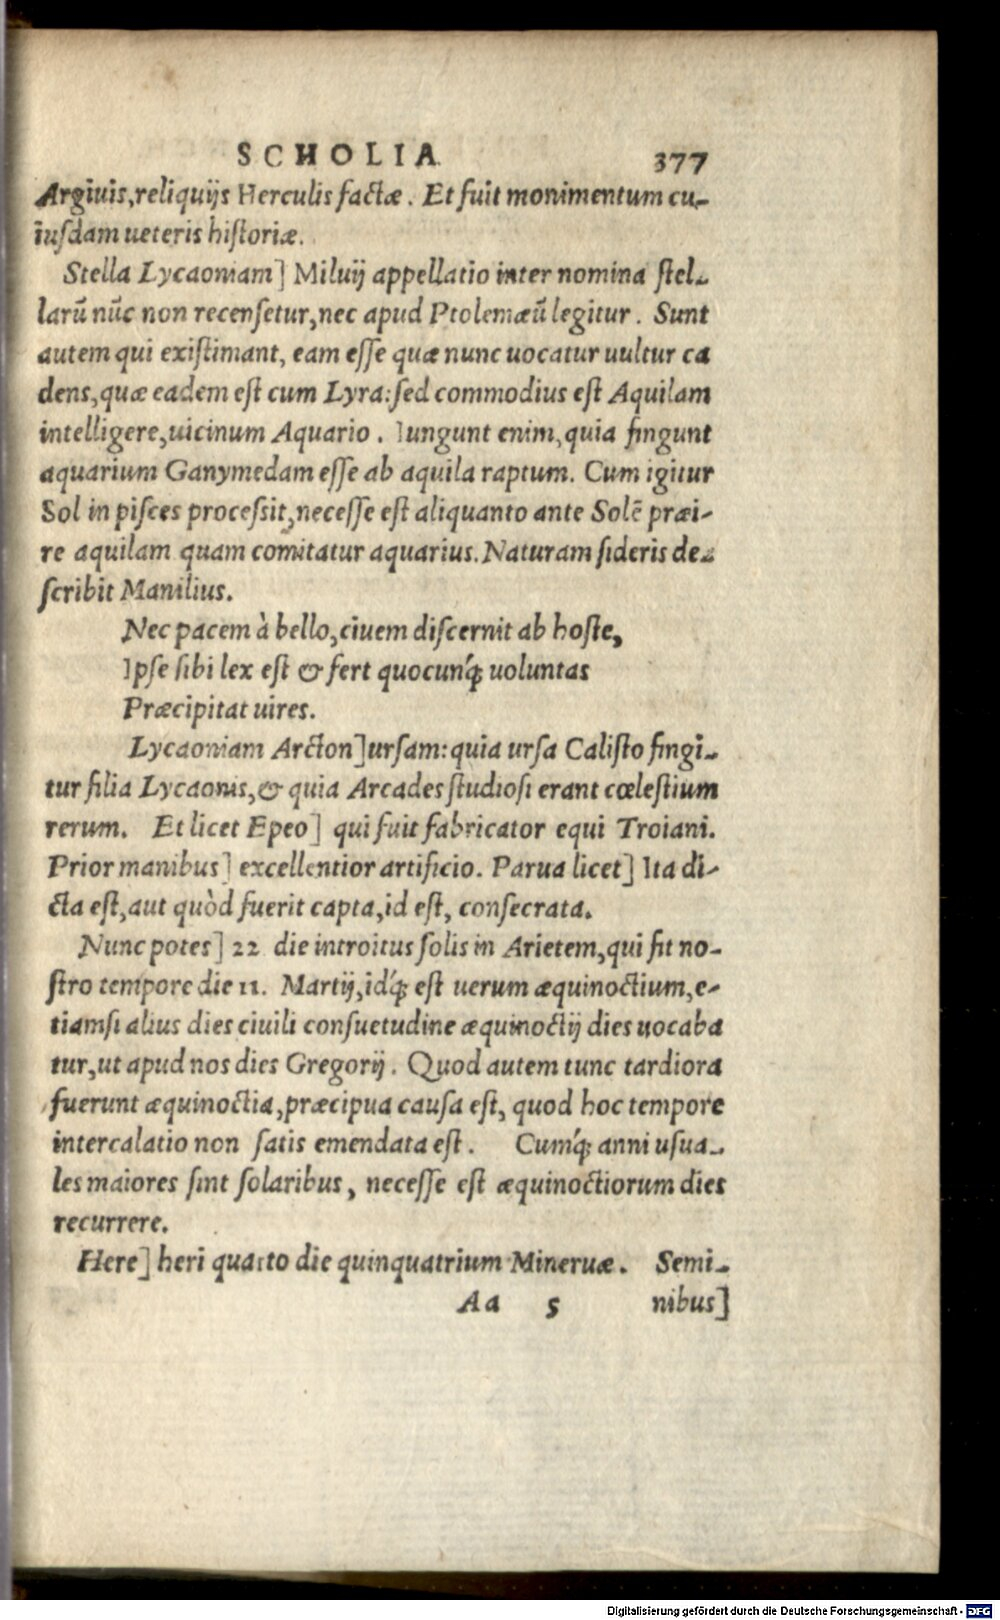 SCHOLIA 377
Argiuis, reliquijs Herculis factæ. Et fuit monimentum cu-
iusdam ueteris historiæ.
Stella Lycaoniam] Miluij appellatio inter nomina stel-
larũ nũc non recensetur, nec apud Ptolemæũ legitur. Sunt
autem qui existimant, eam esse quæ nunc uocatur uultur ca
dens, quæ eadem est cum Lyra: sed commodius est Aquilam
intelligere, uicinum Aquario. Iungunt enim, quia fingunt
aquarium Ganymedam esse ab aquila raptum. Cum igitur
Sol in pisces processit, necesse est aliquanto ante Solẽ præi-
re aquilam quam comitatur aquarius. Naturam sideris de-
scribit Manilius.
Nec pacem à bello, ciuem discernit ab hoste,
Ipse sibi lex est & fert quocunq́; uoluntas
Præcipitat uires.
Lycaoniam Arcton] ursam: quia ursa Calisto fingi-
tur filia Lycaonis, & quia Arcades studiosi erant cœlestium
rerum. Et licet Epeo] qui fuit fabricator equi Troiani.
Prior manibus] excellentior artificio. Parua licet] Ita di-
cta est, aut quòd fuerit capta, id est, consecrata.
Nunc potes] 22 die introitus solis in Arietem, qui fit no-
stro tempore die 11. Martij, idq́; est uerum æquinoctium, e-
tiamsi alius dies ciuili consuetudine æquinoctij dies uocaba
tur, ut apud nos dies Gregorij. Quod autem tunc tardiora
fuerunt æquinoctia, præcipua causa est, quod hoc tempore
intercalatio non satis emendata est. Cumq́; anni usua-
les maiores sint solaribus, necesse est æquinoctiorum dies
recurrere.
Here] heri quarto die quinquatrium Mineruæ. Semi-
Aa 5 nibus]
Digitalisierung gefördert durch die Deutsche Forschungsgemeinschaft - DFG